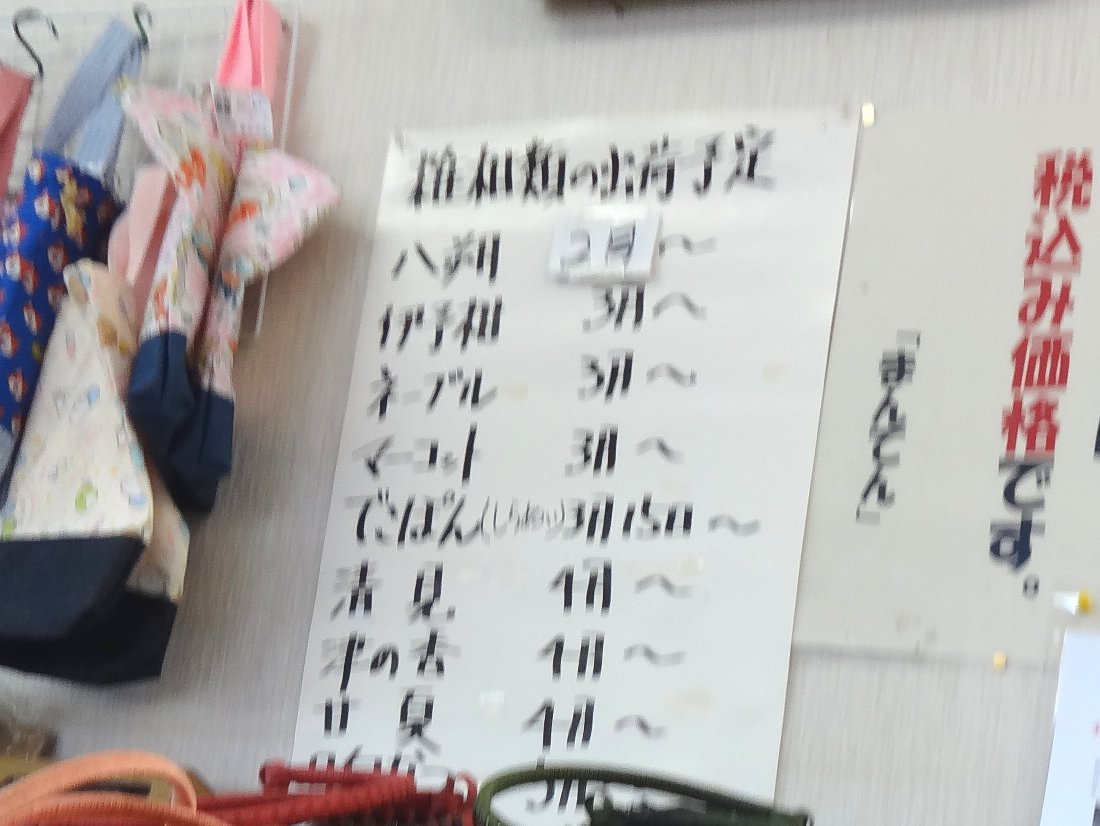 雑柑類の出荷予定
八朔 2月～
伊予柑 3月～
ネーブル 3月～
マーコット 3月～
でこぽん(しらぬい)3月15日～
清見 4月～
津の香 4月～
甘夏 4月～
税込み価格です。
「まんてん」